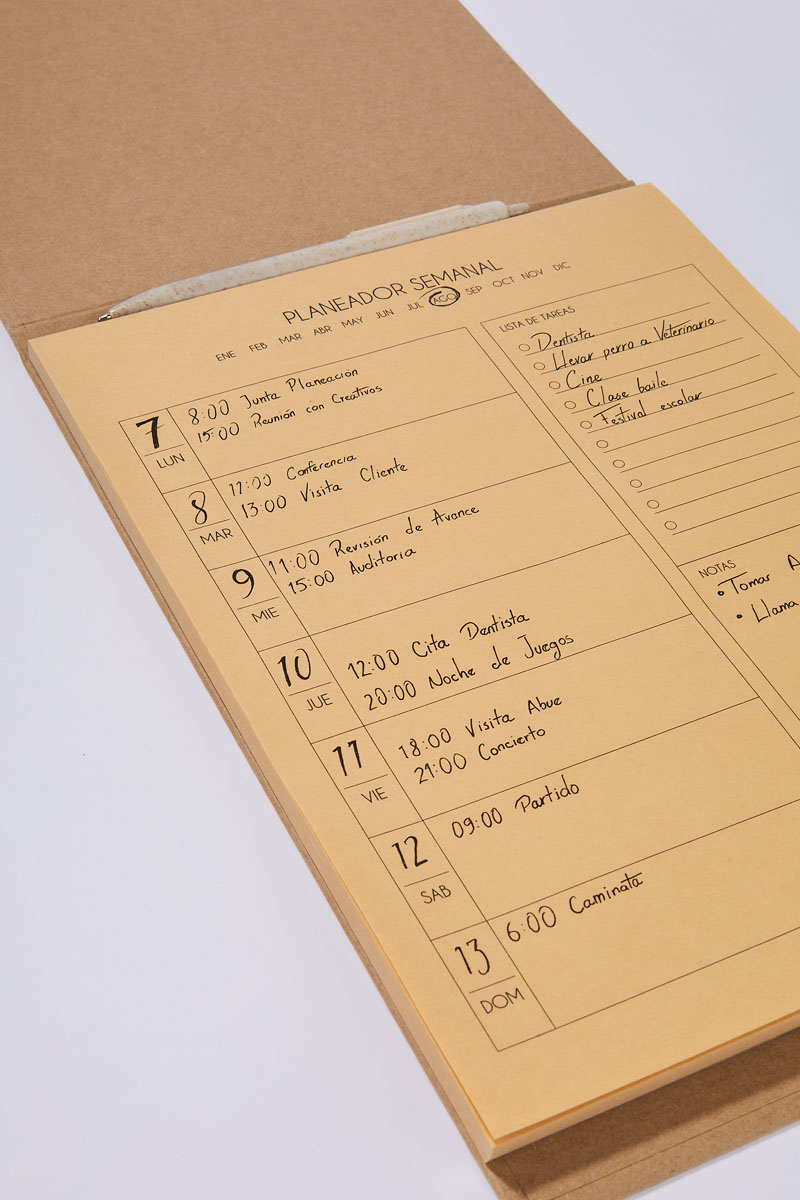 PLANEADOR SEMANAL
ENE FEB MAR ABR MAY JUN JUL AGO SEP OCT NOV DIC
7
LUN
8:00 Junta Planeación
15:00 Reunión con Creativos
8
MAR
11:00 Conferencia
13:00 Visita Cliente
9
MIE
11:00 Revisión de Avance
15:00 Auditoria
10
JUE
12:00 Cita Dentista
20:00 Noche de Juegos
11
VIE
18:00 Visita Abue
21:00 Concierto
12
SAB
09:00 Partido
13
DOM
6:00 Caminata
LISTA DE TAREAS
Dentista
Llevar perro a Veterinario
Cine
Clase baile
Festival escolar
NOTAS
• Tomar A
• Llama